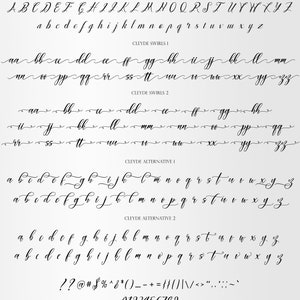 A B C D E F G H I J K L M N O P Q R S T U V W X Y Z
a b c d e f g h i j k l m n o p q r s t u v w x y z
CLEYDE SWIRLS 1
aa bb cc dd ee ff gg hh ii jj kk ll mm
nn oo pp qq rr ss tt uu vv ww xx yy zz
CLEYDE SWIRLS 2
aa bb cc dd ee ff gg hh
ii jj kk ll mm nn oo pp qq
rr ss tt uu vv ww xx yy zz
CLEYDE ALTERNATIVE 1
a b c d e f g h i j k l m n o p q r s t u v w x y z
a b c d e f g h i j k l m n o p q r s t u v w x y z
CLEYDE ALTERNATIVE 2
a b c d e f g h i j k l m n o p q r s t u v w x y z
a b c d e f g h i j k l m n o p q r s t u v w x y z